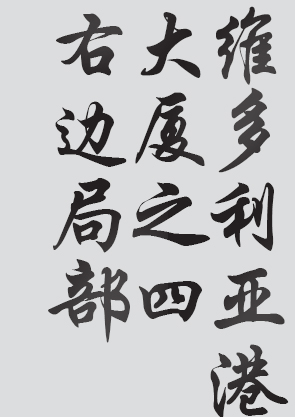 维多利亚港
大厦之四
右边局部